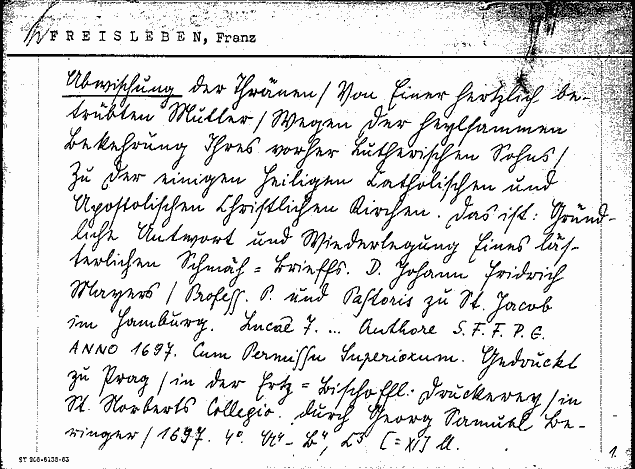 FREISLEBEN, Franz
Abwischung der Thränen / Von Einer hertzlich be-
trübten Mutter / Wegen der heylsammen
Bekehrung Ihres vorher Lutherischen Sohns /
Zu der einigen Heiligen Catholischen und
Apostolischen Christlichen Kirchen. Das ist: Gründ-
liche Antwort und Wiederlegung Eines läs-
terlichen Schmäh = Brieffs. D. Johann Fridrich
Mayers / Profess. P. und Pastoris zu St. Jacob
im Hamburg. Lucae 7. ... Authore S. F. F. P. C.
ANNO 1697. Cum Permissu Superiorum. Gedruckt
zu Prag / in der Ertz = Bischoffl. Druckerey / in
St. Norberts Collegio. durch Georg Samuel Be-
ringer / 1697. 4°. A⁴ - B⁴, C³ [= XI] Bl.
ST 206-6138-63
1